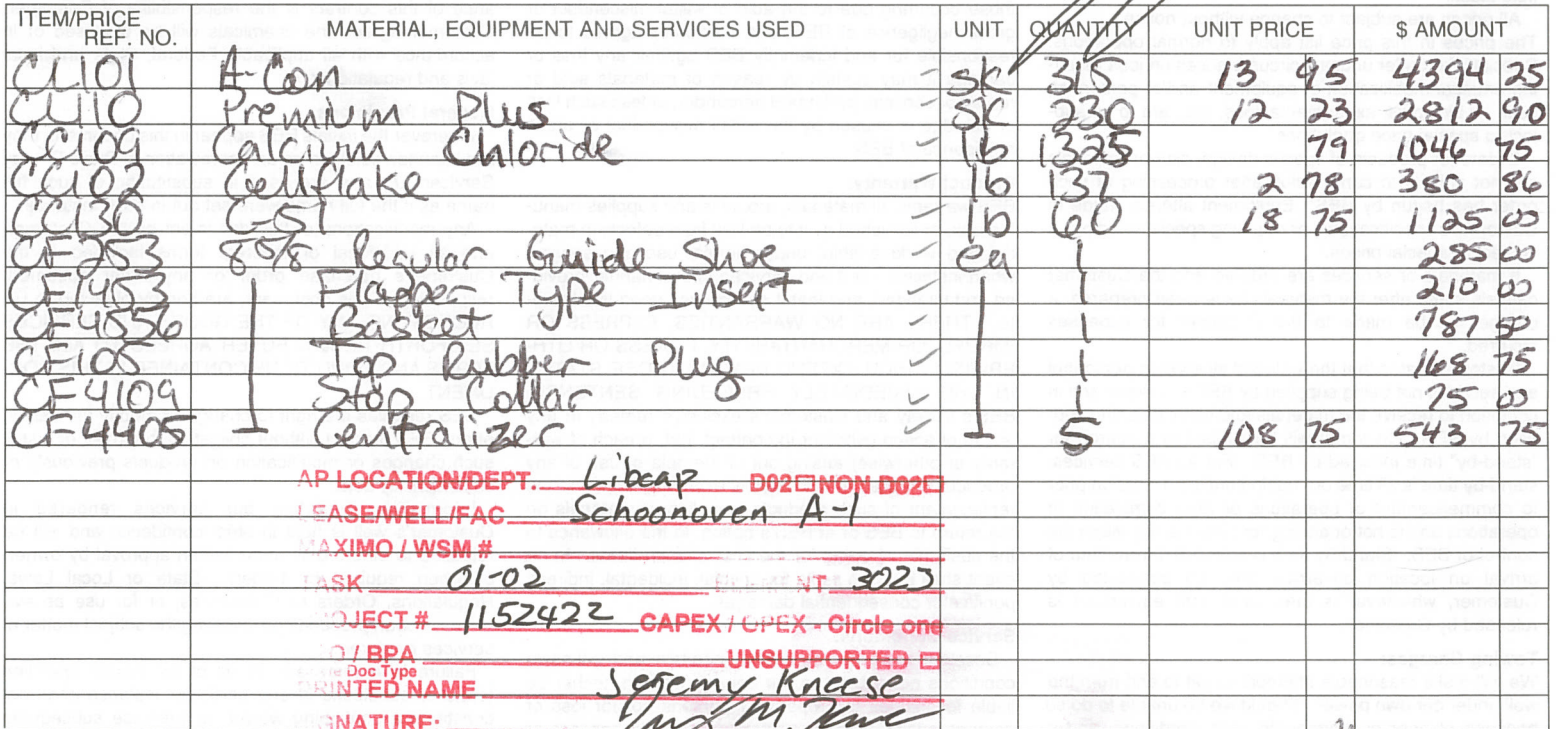 ITEM/PRICE REF. NO. MATERIAL, EQUIPMENT AND SERVICES USED UNIT QUANTITY UNIT PRICE $ AMOUNT
CL101 A-Con sk 315 13 95 4394 25
CL110 Premium Plus sk 230 12 23 2812 90
CC109 Calcium Chloride lb 1325 79 1046 75
CC102 Cellflake lb 137 2 78 380 86
CC130 C-51 lb 60 18 75 1125 00
CF253 8 5/8 Regular Guide Shoe ea 1 285 00
CF1453 Flapper Type Insert 1 210 00
CF4556 Basket 1 787 50
CF105 Top Rubber Plug 1 168 75
CF4109 Stop Collar 1 75 00
CF4405 Centralizer 5 108 75 543 75
AP LOCATION/DEPT. Libcap D02☐NON D02☐
LEASE/WELL/FAC Schoonoven A-1
MAXIMO / WSM #
TASK 01-02 NT 3023
OJECT # 1152422 CAPEX / OPEX - Circle one
O / BPA UNSUPPORTED ☐
Doc Type
PRINTED NAME Jeremy Kneese
GNATURE: